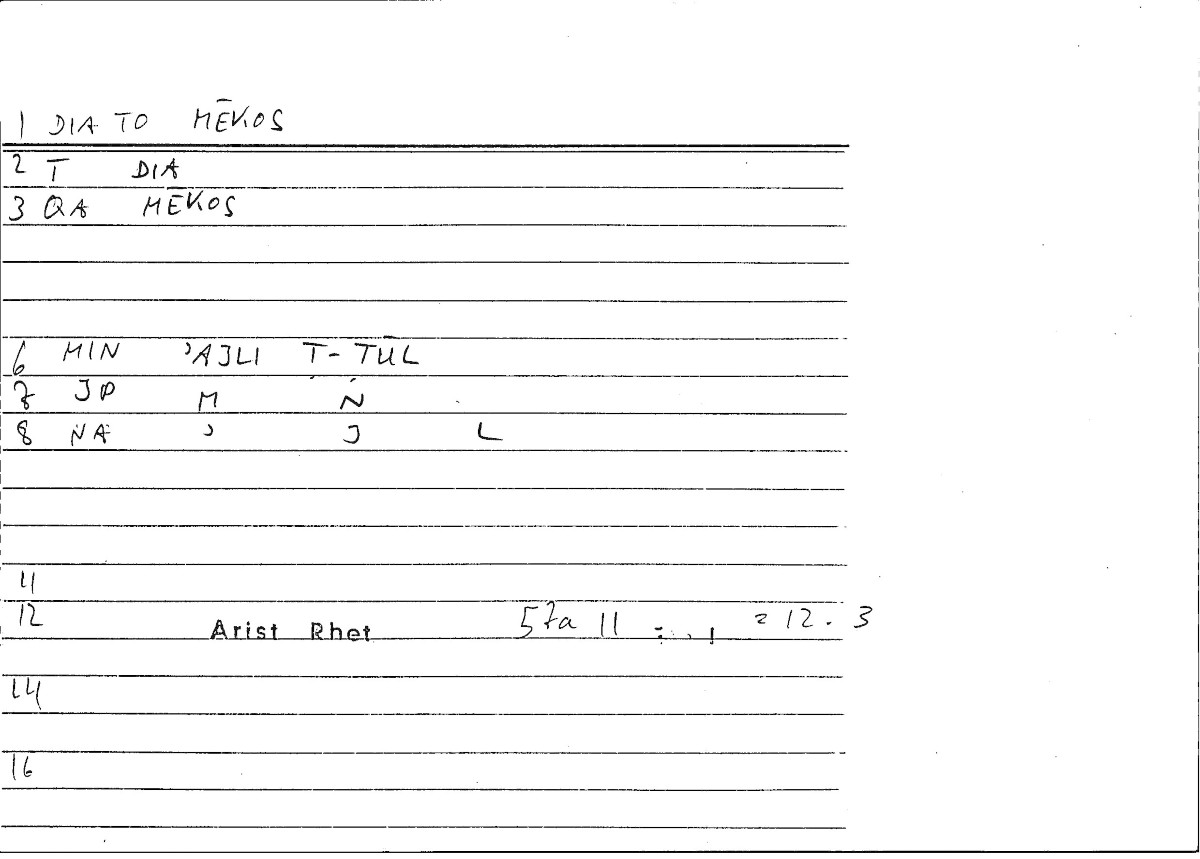 1 DIA TO MĒKOS
2 T DIA
3 QA MĒKOS
6 MIN ʾAJLI Ṭ-ṬŪL
7 JP M N
8 NA ʾ J L
11
12 Arist Rhet 57a 11 = 12. 3
14
16